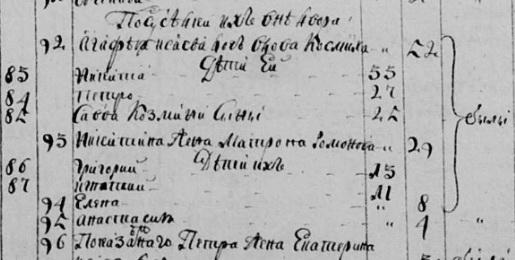 Подсѣдки ихъ внѣ двора
92 Агафья Исаева дочь вдова Космиха " 52
Дѣти Ея
83 Никита 33
84 Петро 27
85 Савва Козмины Сыны 25
были
93 Никитина Жена Матрона Романова " 29
Дѣти ихъ
86 Григорий 15
87 Игнатий 11
94 Елена " 8
95 Анастасия " 4 "
96 Показанаго Петра Жена Екатерина